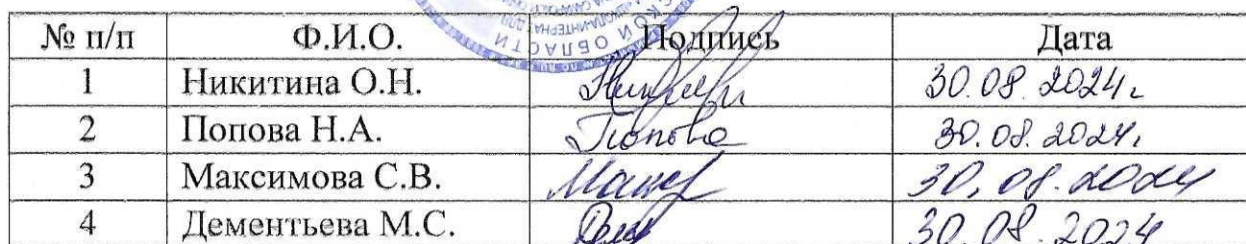 № п/п Ф.И.О. Подпись Дата
1 Никитина О.Н. 30.08.2024г
2 Попова Н.А. Попова 30.08.2024.
3 Максимова С.В. 30.08.2024
4 Дементьева М.С. 30.08.2024
ОБЛАСТИ